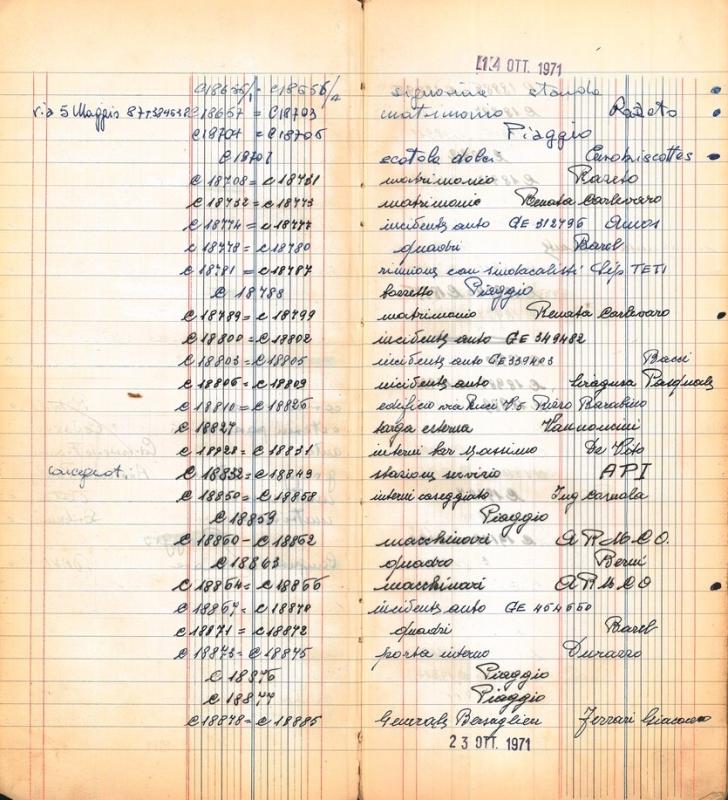 14 OTT. 1971
C18656/2 signorina standa
via 5 Maggio 87 T384638 C18657 = C18703 matrimonio Razeto
C18704 = C18706 Piaggio
C18707 scatola dolci
C18708 = C18731 matrimonio Razeto
C18732 = C18773 matrimonio Renata Carlevaro
C18774 = C18777 incidente auto GE 312796 Amos
C18778 = C18780 quadri Barel
C18781 = C18787 riunione con sindacalisti Sip TETI
C18788 Piaggio
C18789 = C18799 matrimonio Renata Carlevaro
C18800 = C18802 incidente auto GE 349482
C18803 = C18805 incidente auto GE 339403 Bacci
C18806 = C18809 incidente auto Siragusa Pasquale
C18810 = C18826 edificio via Ricci Piero Barabino
C18827 targa esterna Vannoncini
C18828 = C18831 interni bar Massimo De Vito
consegnat. C18832 = C18849 stazione servizio API
C18850 = C18858 interni caseggiato Ing
C18859 Piaggio
C18860 - C18862 macchinari A R M C O.
C18863 quadro Berni
C18864 = C18866 macchinari A R M C O
C18867 = C18870 incidente auto GE 454550
C18871 = C18872 quadri Barel
C18873 = C18875 porta interno Durazzo
C18876 Piaggio
C18877 Piaggio
C18878 = C18885 Generale Bersaglieri Ferrari Giacomo
23 OTT. 1971